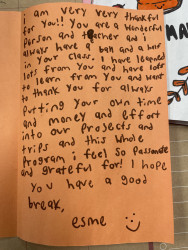 I am very very thankful
for you!! You are a wonderful
Person and teacher and i
always have a bah and a half
in your class. I have learned
lots from you and have lots
to learn from you and want
to thank you for always
putting your own time
and money and effort
into our projects and
trips and this whole
program i feel so passionate
and grateful for! I hope
you have a good
break,
esme